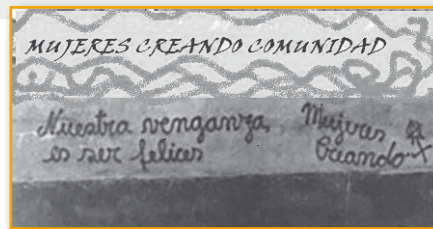 MUJERES CREANDO COMUNIDAD
Nuestra venganza
es ser felices
Mujeres
Creando